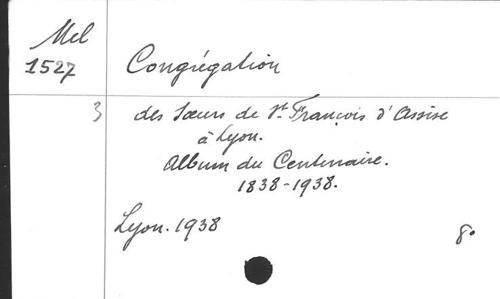 Mel
1527
Congrégation
3
des Sœurs de St François d'Assise
à Lyon.
Album du Centenaire.
1838-1938.
Lyon. 1938
8º